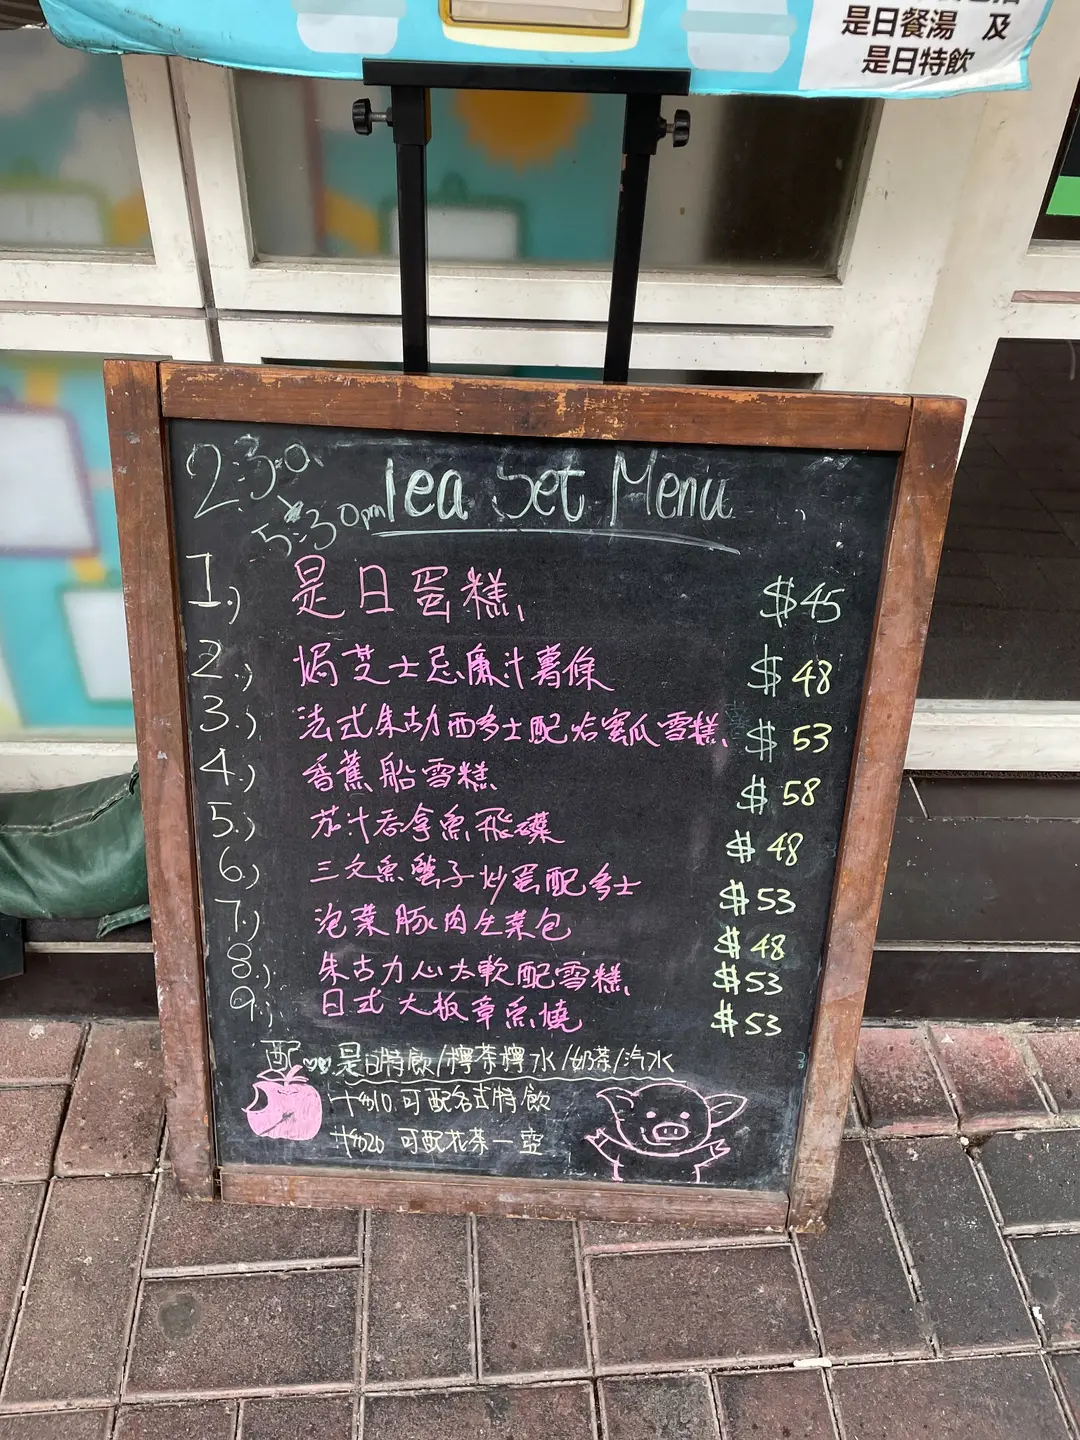 是日餐湯 及
是日特飲
2:30
5:30pm
Tea Set Menu
1.) 是日蛋糕 $45
2.) 焗芝士忌廉汁薯條 $48
3.) 法式朱古力西多士配哈蜜瓜雪糕 $53
4.) 香蕉船雪糕 $58
5.) 茄汁吞拿魚飛碟 $48
6.) 三文魚蟹子炒蛋配多士 $53
7.) 泡菜豚肉生菜包 $48
8.) 朱古力心太軟配雪糕 $53
9.) 日式大板章魚燒 $53
配 是日特飲/檸茶檸水/奶茶/汽水
+$10 可配各式特飲
+$20 可配花茶一壺